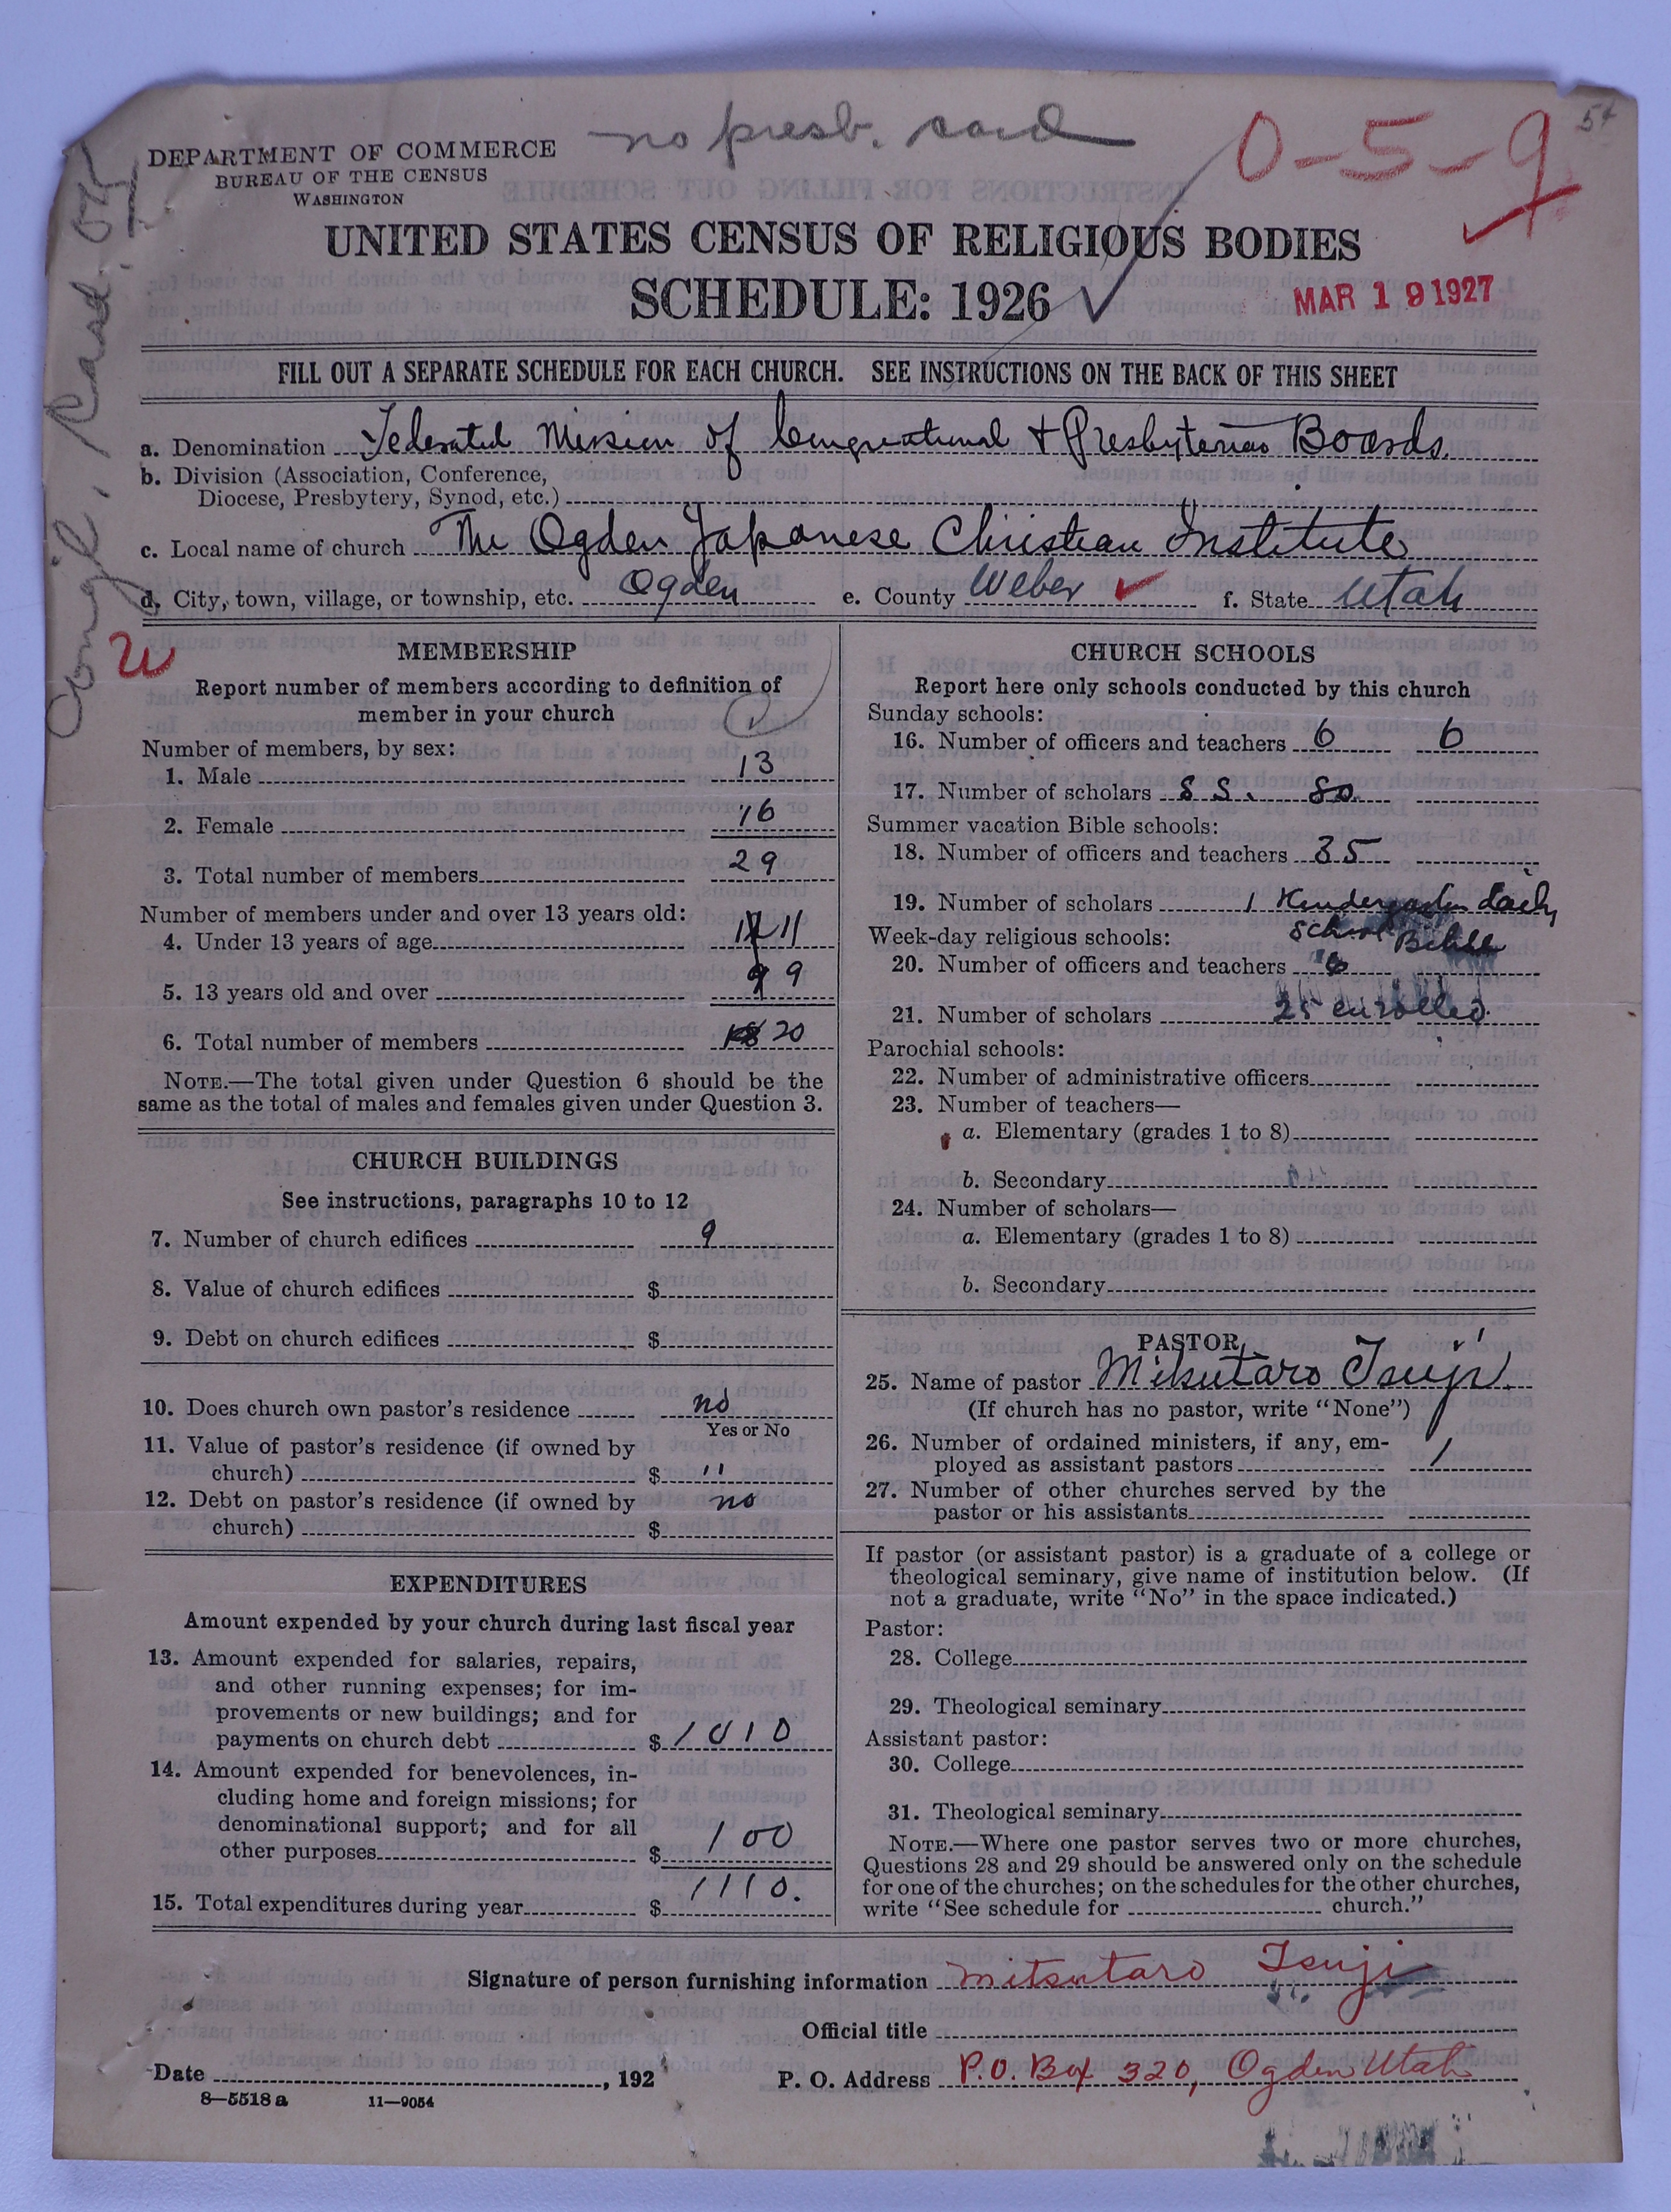 no presb. card
0-5-9
54
DEPARTMENT OF COMMERCE
BUREAU OF THE CENSUS
WASHINGTON
UNITED STATES CENSUS OF RELIGIOUS BODIES
SCHEDULE: 1926
MAR 19 1927
FILL OUT A SEPARATE SCHEDULE FOR EACH CHURCH. SEE INSTRUCTIONS ON THE BACK OF THIS SHEET
a. Denomination Federated Mission of Congregational & Presbyterian Boards.
b. Division (Association, Conference,
Diocese, Presbytery, Synod, etc.)
c. Local name of church The Ogden Japanese Christian Institute
d. City, town, village, or township, etc. Ogden e. County Weber f. State Utah
Congl. Card.
MEMBERSHIP
Report number of members according to definition of
member in your church
Number of members, by sex:
1. Male 13
2. Female 16
3. Total number of members 29
Number of members under and over 13 years old:
4. Under 13 years of age 11
5. 13 years old and over 9 9
6. Total number of members 18 20
NOTE.—The total given under Question 6 should be the
same as the total of males and females given under Question 3.
CHURCH BUILDINGS
See instructions, paragraphs 10 to 12
7. Number of church edifices 9
8. Value of church edifices $
9. Debt on church edifices $
10. Does church own pastor's residence no
Yes or No
11. Value of pastor's residence (if owned by
church) $ "
12. Debt on pastor's residence (if owned by no
church) $
EXPENDITURES
Amount expended by your church during last fiscal year
13. Amount expended for salaries, repairs,
and other running expenses; for im-
provements or new buildings; and for
payments on church debt $ 1010
14. Amount expended for benevolences, in-
cluding home and foreign missions; for
denominational support; and for all
other purposes $ 100
15. Total expenditures during year $ 1110.
CHURCH SCHOOLS
Report here only schools conducted by this church
Sunday schools:
16. Number of officers and teachers 6 6
17. Number of scholars S S. 80
Summer vacation Bible schools:
18. Number of officers and teachers 35
19. Number of scholars 1 Kindergarten daily
Week-day religious schools: School Bible
20. Number of officers and teachers
21. Number of scholars 25 enrolled.
Parochial schools:
22. Number of administrative officers
23. Number of teachers—
a. Elementary (grades 1 to 8)
b. Secondary
24. Number of scholars—
a. Elementary (grades 1 to 8)
b. Secondary
PASTOR
25. Name of pastor Mitsutaro Tsuji
(If church has no pastor, write "None")
26. Number of ordained ministers, if any, em-
ployed as assistant pastors 1
27. Number of other churches served by the
pastor or his assistants
If pastor (or assistant pastor) is a graduate of a college or
theological seminary, give name of institution below. (If
not a graduate, write "No" in the space indicated.)
Pastor:
28. College
29. Theological seminary
Assistant pastor:
30. College
31. Theological seminary
NOTE.—Where one pastor serves two or more churches,
Questions 28 and 29 should be answered only on the schedule
for one of the churches; on the schedules for the other churches,
write "See schedule for church."
Signature of person furnishing information Mitsutaro Tsuji
Official title
Date , 192
P. O. Address P.O. Box 320, Ogden Utah
8—5518 a 11—9054